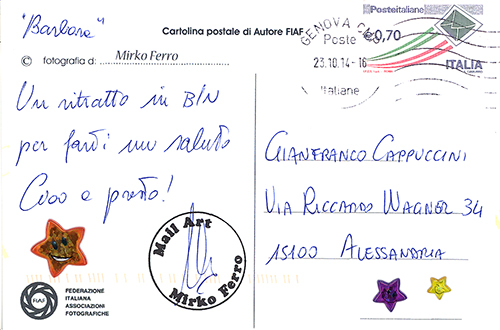 "Barbara"
Cartolina postale di Autore FIAF
© fotografia di: Mirko Ferro
Un ritratto in B/N
per farti un saluto
Ciao a presto!
Mail Art
Mirko Ferro
FIAF
FEDERAZIONE
ITALIANA
ASSOCIAZIONI
FOTOGRAFICHE
Posteitaliane
€0,70
ITALIA
GENOVA
Poste
23.10.14-16
Italiane
GIANFRANCO CAPPUCCINI
VIA RICCARDO WAGNER 34
15100 ALESSANDRIA